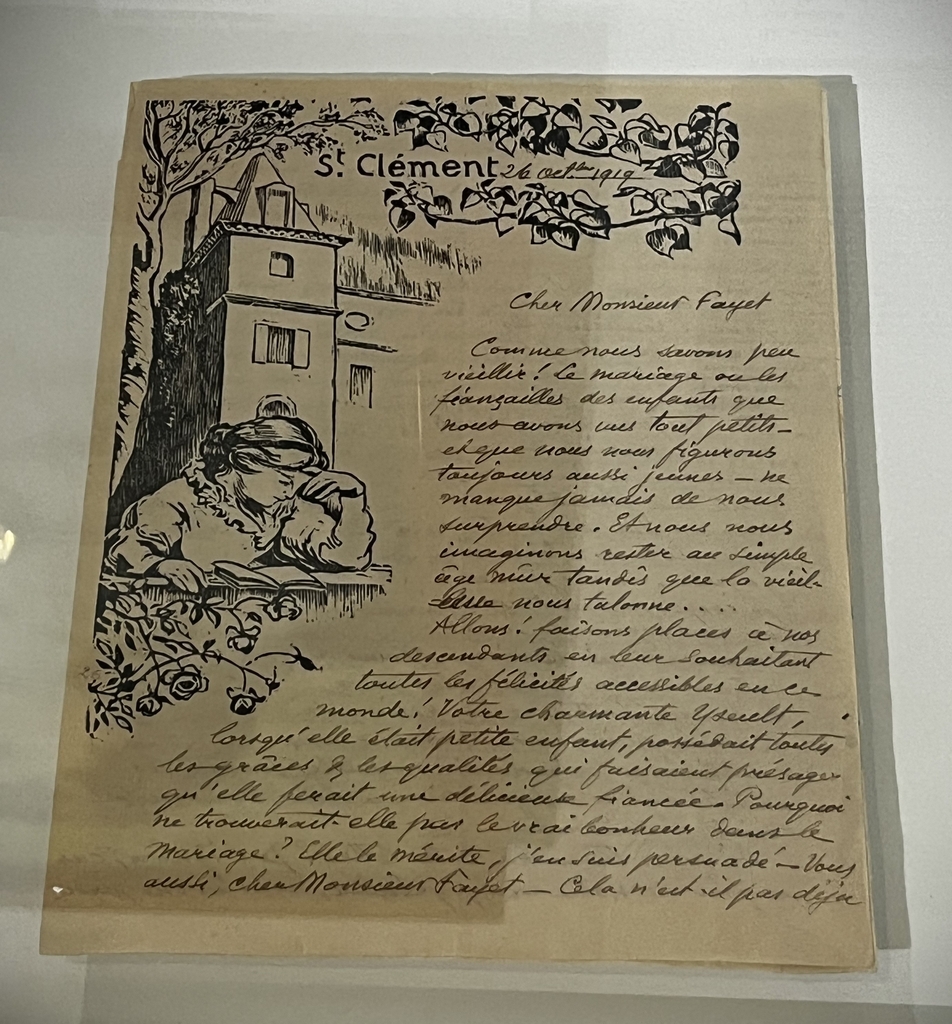 St Clément 26 oct.bre 1919
Cher Monsieur Fayet
Comme nous savons peu
vieillir! Le mariage ou les
fiançailles des enfants que
nous avons vus tout petits –
et que nous nous figurons
toujours aussi jeunes – ne
manque jamais de nous
surprendre. Et nous nous
imaginons rester au simple
âge mûr tandis que la vieil-
lesse nous talonne....
Allons! faisons places à nos
descendants en leur souhaitant
toutes les félicités accessibles en ce
monde! Votre charmante Yseult,
lorsqu'elle était petite enfant, possédait toutes
les grâces & les qualités qui faisaient présager
qu'elle ferait une délicieuse fiancée. Pourquoi
ne trouverait-elle pas le vrai bonheur dans le
mariage? Elle le mérite, j'en suis persuadé – Vous
aussi, cher Monsieur Fayet – Cela n'est-il pas déjà